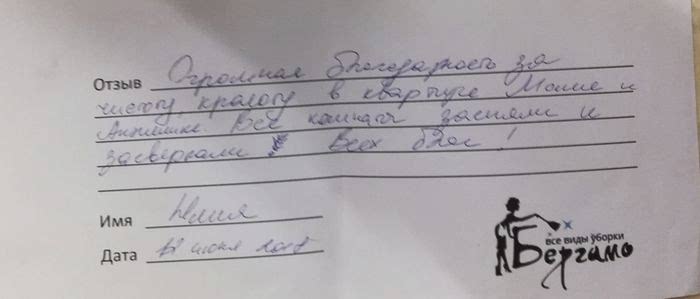 Отзыв Огромная благодарность за
чистоту, красоту в квартире Маше и
Анжелике. Все комнаты засияли и
засверкали Всех благ!
Имя Юлия
Дата июня
все виды уборки
Бергамо